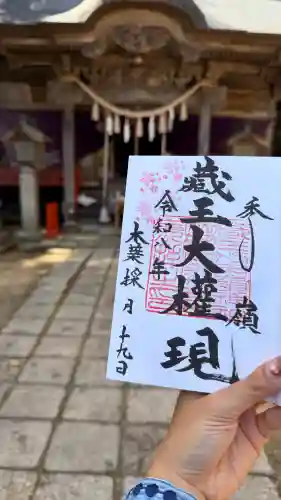 奉
嶺
蔵王大権現
令和八年
木葉採月
十九日